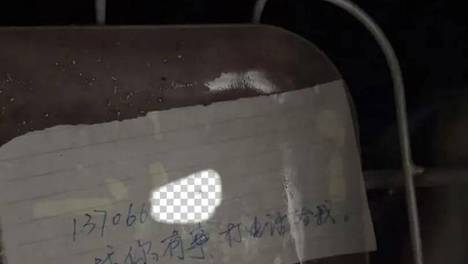 137066
你有事打电话给我。